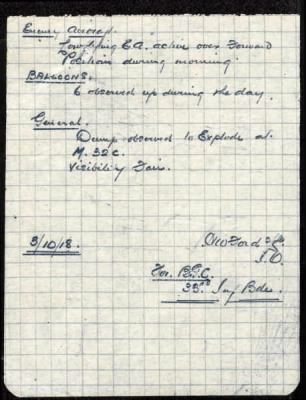 Enemy Aircraft.
Low flying E.A. active over Forward
Positions during morning.
BALLOONS.
6 observed up during the day.
General.
Dump observed to Explode at
M. 32 c.
Visibility Fair.
3/10/18.
Ford
I.O.
For. B.G.C.
Inf Bde.